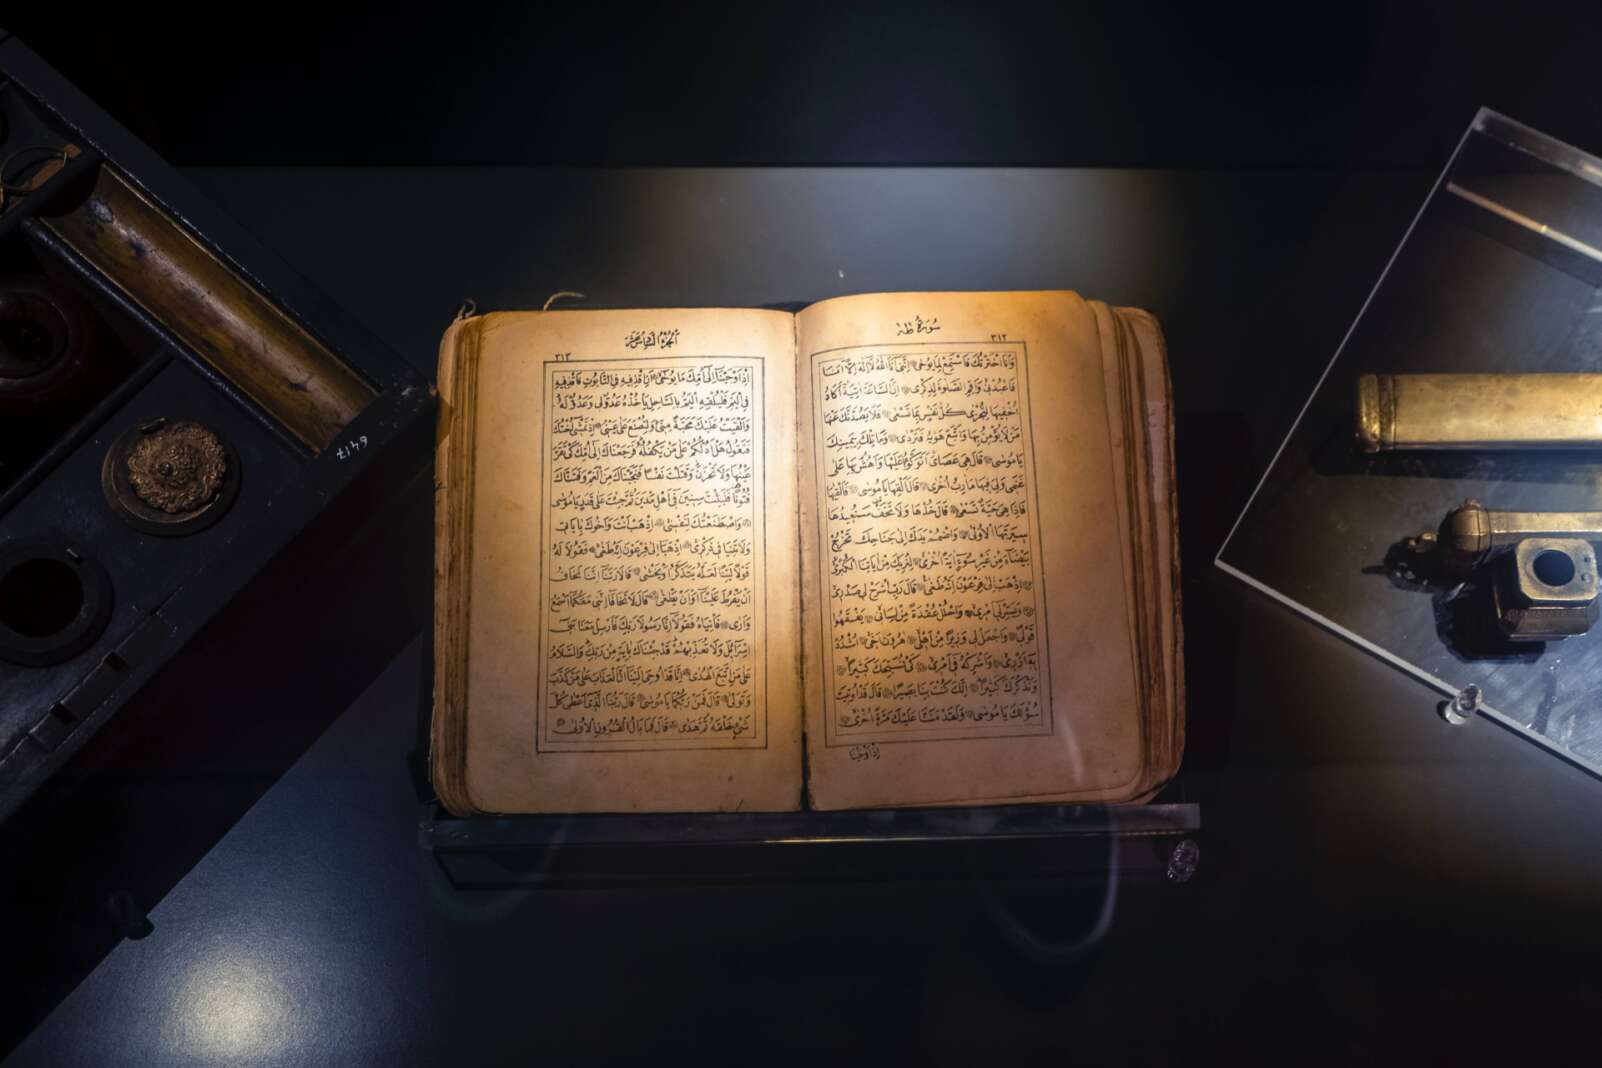 سُورَةُ طٰهٰ ٣١٢
وَاَنَا اخْتَرْتُكَ فَاسْتَمِعْ لِمَا يُوحٰى اِنَّنِى اَنَا اللّٰهُ لَا اِلٰهَ اِلَّا اَنَا
فَاعْبُدْنِى وَاَقِمِ الصَّلٰوةَ لِذِكْرِى اِنَّ السَّاعَةَ اٰتِيَةٌ اَكَادُ
اُخْفِيهَا لِتُجْزٰى كُلُّ نَفْسٍ بِمَا تَسْعٰى فَلَا يَصُدَّنَّكَ عَنْهَا
مَنْ لَا يُؤْمِنُ بِهَا وَاتَّبَعَ هَوٰيهُ فَتَرْدٰى وَمَا تِلْكَ بِيَمِينِكَ
يَا مُوسٰى قَالَ هِىَ عَصَاىَ اَتَوَكَّؤُا عَلَيْهَا وَاَهُشُّ بِهَا عَلٰى
غَنَمِى وَلِىَ فِيهَا مَاٰرِبُ اُخْرٰى قَالَ اَلْقِهَا يَا مُوسٰى فَاَلْقٰيهَا
فَاِذَا هِىَ حَيَّةٌ تَسْعٰى قَالَ خُذْهَا وَلَا تَخَفْ سَنُعِيدُهَا
سِيرَتَهَا الْاُولٰى وَاضْمُمْ يَدَكَ اِلٰى جَنَاحِكَ تَخْرُجْ
بَيْضَاءَ مِنْ غَيْرِ سُوءٍ اٰيَةً اُخْرٰى لِنُرِيَكَ مِنْ اٰيَاتِنَا الْكُبْرٰى
اِذْهَبْ اِلٰى فِرْعَوْنَ اِنَّهُ طَغٰى قَالَ رَبِّ اشْرَحْ لِى صَدْرِى
وَيَسِّرْ لِى اَمْرِى وَاحْلُلْ عُقْدَةً مِنْ لِسَانِى يَفْقَهُوا
قَوْلِى وَاجْعَلْ لِى وَزِيرًا مِنْ اَهْلِى هٰرُونَ اَخِى اُشْدُدْ
بِهِ اَزْرِى وَاَشْرِكْهُ فِى اَمْرِى كَىْ نُسَبِّحَكَ كَثِيرًا
وَنَذْكُرَكَ كَثِيرًا اِنَّكَ كُنْتَ بِنَا بَصِيرًا قَالَ قَدْ اُوتِيتَ
سُؤْلَكَ يَا مُوسٰى وَلَقَدْ مَنَنَّا عَلَيْكَ مَرَّةً اُخْرٰى
اِذْ اَوْحَيْنَا
اَلْجُزْءُ السَّادِسَ عَشَرَ ٣١٣
اِذْ اَوْحَيْنَا اِلٰى اُمِّكَ مَا يُوحٰى اَنِ اقْذِفِيهِ فِى التَّابُوتِ فَاقْذِفِيهِ
فِى الْيَمِّ فَلْيُلْقِهِ الْيَمُّ بِالسَّاحِلِ يَأْخُذْهُ عَدُوٌّ لِى وَعَدُوٌّ لَهُ
وَاَلْقَيْتُ عَلَيْكَ مَحَبَّةً مِنِّى وَلِتُصْنَعَ عَلٰى عَيْنِى اِذْ تَمْشِى اُخْتُكَ
فَتَقُولُ هَلْ اَدُلُّكُمْ عَلٰى مَنْ يَكْفُلُهُ فَرَجَعْنَاكَ اِلٰى اُمِّكَ كَىْ تَقَرَّ
عَيْنُهَا وَلَا تَحْزَنَ وَقَتَلْتَ نَفْسًا فَنَجَّيْنَاكَ مِنَ الْغَمِّ وَفَتَنَّاكَ
فُتُونًا فَلَبِثْتَ سِنِينَ فِى اَهْلِ مَدْيَنَ ثُمَّ جِئْتَ عَلٰى قَدَرٍ يَا مُوسٰى
وَاصْطَنَعْتُكَ لِنَفْسِى اِذْهَبْ اَنْتَ وَاَخُوكَ بِاٰيَاتِى
وَلَا تَنِيَا فِى ذِكْرِى اِذْهَبَا اِلٰى فِرْعَوْنَ اِنَّهُ طَغٰى فَقُولَا لَهُ
قَوْلًا لَيِّنًا لَعَلَّهُ يَتَذَكَّرُ اَوْ يَخْشٰى قَالَا رَبَّنَا اِنَّنَا نَخَافُ
اَنْ يَفْرُطَ عَلَيْنَا اَوْ اَنْ يَطْغٰى قَالَ لَا تَخَافَا اِنَّنِى مَعَكُمَا اَسْمَعُ
وَاَرٰى فَأْتِيَاهُ فَقُولَا اِنَّا رَسُولَا رَبِّكَ فَاَرْسِلْ مَعَنَا بَنِى
اِسْرَائِلَ وَلَا تُعَذِّبْهُمْ قَدْ جِئْنَاكَ بِاٰيَةٍ مِنْ رَبِّكَ وَالسَّلَامُ
عَلٰى مَنِ اتَّبَعَ الْهُدٰى اِنَّا قَدْ اُوحِىَ اِلَيْنَا اَنَّ الْعَذَابَ عَلٰى مَنْ كَذَّبَ
وَتَوَلّٰى قَالَ فَمَنْ رَبُّكُمَا يَا مُوسٰى قَالَ رَبُّنَا الَّذِى اَعْطٰى كُلَّ
شَىْءٍ خَلْقَهُ ثُمَّ هَدٰى قَالَ فَمَا بَالُ الْقُرُونِ الْاُولٰى
6417